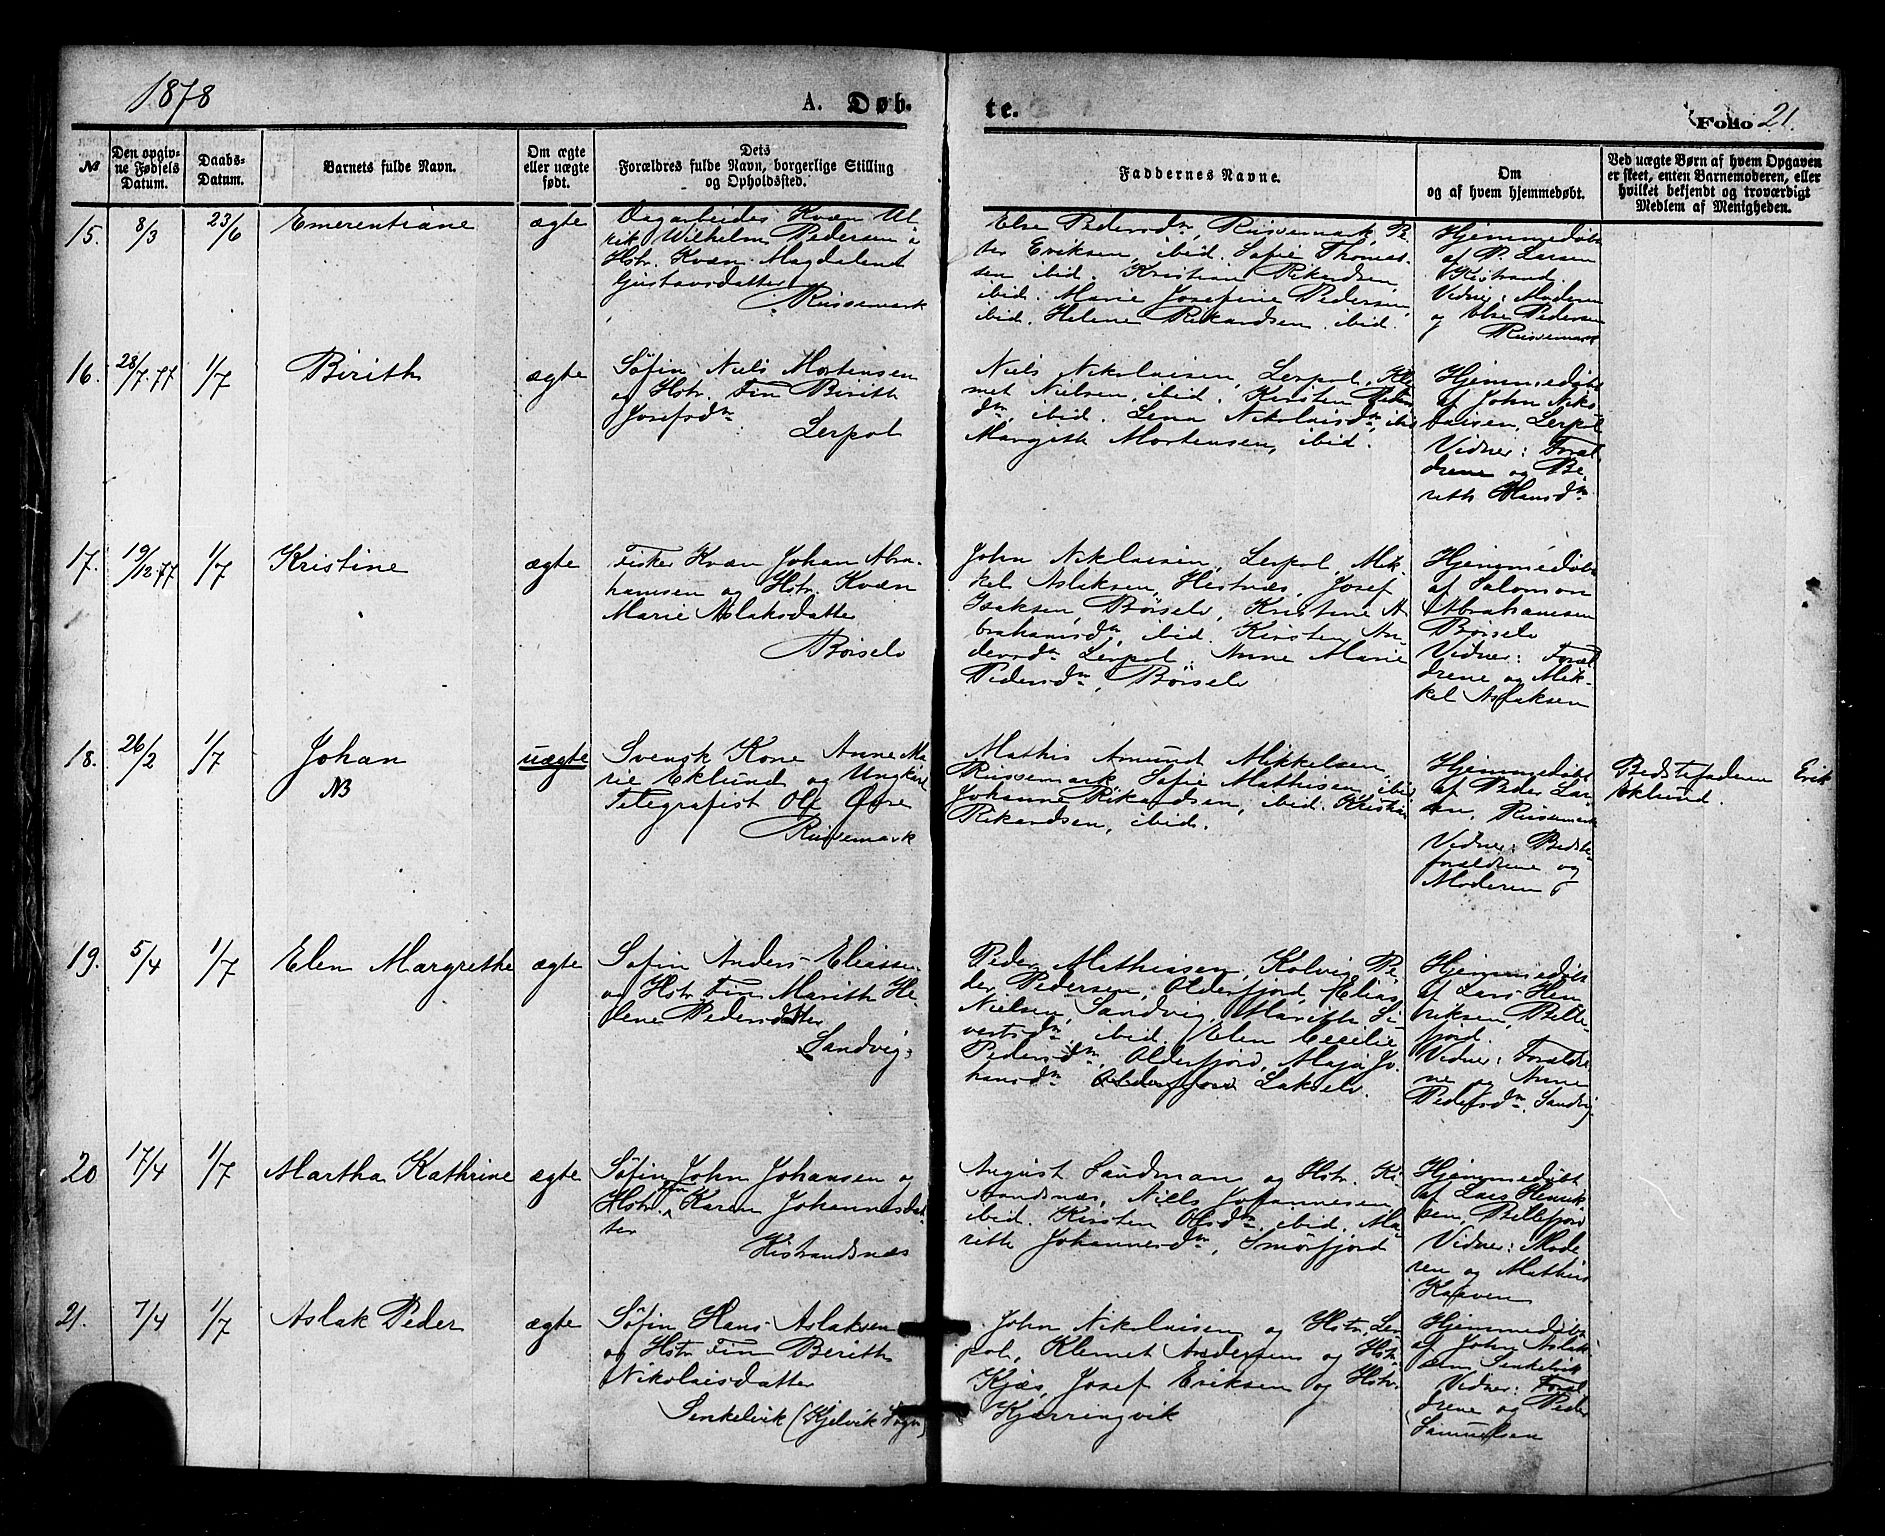 1878
A. Døb-
te.
Folio 21.
№
Den opgiv-
ne Fødsels
Datum.
Daabs-
Datum.
Barnets fulde Navn.
Om ægte
eller uægte
født.
Dets
Forældres fulde Navn, borgerlige Stilling
og Opholdssted.
Faddernes Navne.
Om
og af hvem hjemmedøbt.
Ved uægte Børn af hvem Opgaven
er skeet, enten Barnemoderen, eller
hvilket bekjendt og troværdigt
Medlem af Menigheden.
15. 8/3 23/6 Emerentiane ægte
Kvæn Ul-
rik Wilhelm Pedersen
Hstr. Kvæn Magdalena
Gustavsdatter
Russemark
Else Pedersdtr, Russemark, Pe-
ter Eriksen, ibid. Sofie Thomas-
sen ibid. Kristian Rikardsen,
ibid. Marie Josefine Pedersen,
ibid. Helene Rikardsen ibid.
Hjemmedøbt
af P. Larsen
Kistrand.
Vidner: Moderen
og Else Pedersen
Russemark
16. 28/7.77 1/7 Birith ægte
Søfin Niels Mortensen
og Hstr. Fin Birith
Josefsdtr
Lerpol
Niels Nikolaisen, Lerpol, Kle-
met Nielsen, ibid. Kirsten Peders
dtr, ibid. Lena Nikolaisdtr, ibid
Margith Mortensen, ibid.
Hjemmedøbt
af John Niko-
laisen, Lerpol
Vidner: Foræl-
drene og Be-
reth Hansdtr
17. 19/12.77 1/7 Kristine ægte
Fisker Kvæn Johan Abra-
hamsen og Hstr. Kvæn
Marie Aslaksdatter
Børselv
John Niklaisen, Lerpol, Mik-
kel Aslaksen, Hestnæs, Josef
Isaksen, Børselv, Kristine A-
brahamsdtr, ibid. Kirsten An-
dersdtr Lerpol, Anne Marie
Pedersdtr, Børselv
Hjemmedøbt
af Salomon
Abrahamsen
Børselv
Vidner: Foræl-
drene og Mik-
kel Aslaksen
18. 26/2 1/7 Johan uægte
NB
Svensk Kone Anne Ma-
rie Eklund og Ungkarl
Telegrafist Ole
Russemark
Mathis Amund Mikkelsen,
Russemark, Sofie Mathisen, ibid
Johanne Rikardsen, ibid. Kristian
Rikardsen, ibid.
Hjemmedøbt
af Peder Lar-
sen, Russemark
Vidner: Bedste-
forældrene og
Moderen
Bedstefaderen Erik
Eklund.
19. 5/4 1/7 Elen Margrethe ægte
Søfin Anders Eliassen
og Hstr. Fin Marith He-
lene Pedersdatter
Sandvig.
Peder Mathisen, Kolvig, Pe-
der Pedersen, Olderfjord, Elias
Nielsen, Sandvig, Marith Si-
vertsdtr ibid. Elen Cecilie
Pedersdtr, Olderfjord, Maja Jo-
hansdtr Olderfjord Lakselv.
Hjemmedøbt
af Lars Hen
riksen, Bille-
fjord.
Vidner: Forældre
ne og Anne
Pedersdtr. Sandvig
20 17/4 1/7 Martha Kathrine ægte
Søfin John Johansen og
Hstr. Fin Karen Johannesdat-
ter
Kistrandsnæs
August Sandman og Hstr. Ki-
strandsnæs, Niels Johannesen
ibid. Kirsten Olsdtr, ibid. Ma-
reth Johannesdtr, Smørfjord
Hjemmedøbt
af Lars Henrik
sen, Billefjord
Vidner: Mode-
ren og Mathis
Kaaven
21. 7/4 1/7 Aslak Peder ægte
Søfin Hans Aslaksen
og Hstr. Fin Berith
Nikolaisdatter
Sinkelvik (Kjelvik Sogn)
John Nikolaisen og Hstr, Ler-
pol, Klemet Andersens og Hstr.
Kjæs, Josef Eriksen og Hstr.
Kjerringvik
Hjemmedøbt
af John Aslak
sen, Sinkelvik
Vidner: Foræl-
drene og Peder
Samuelsen